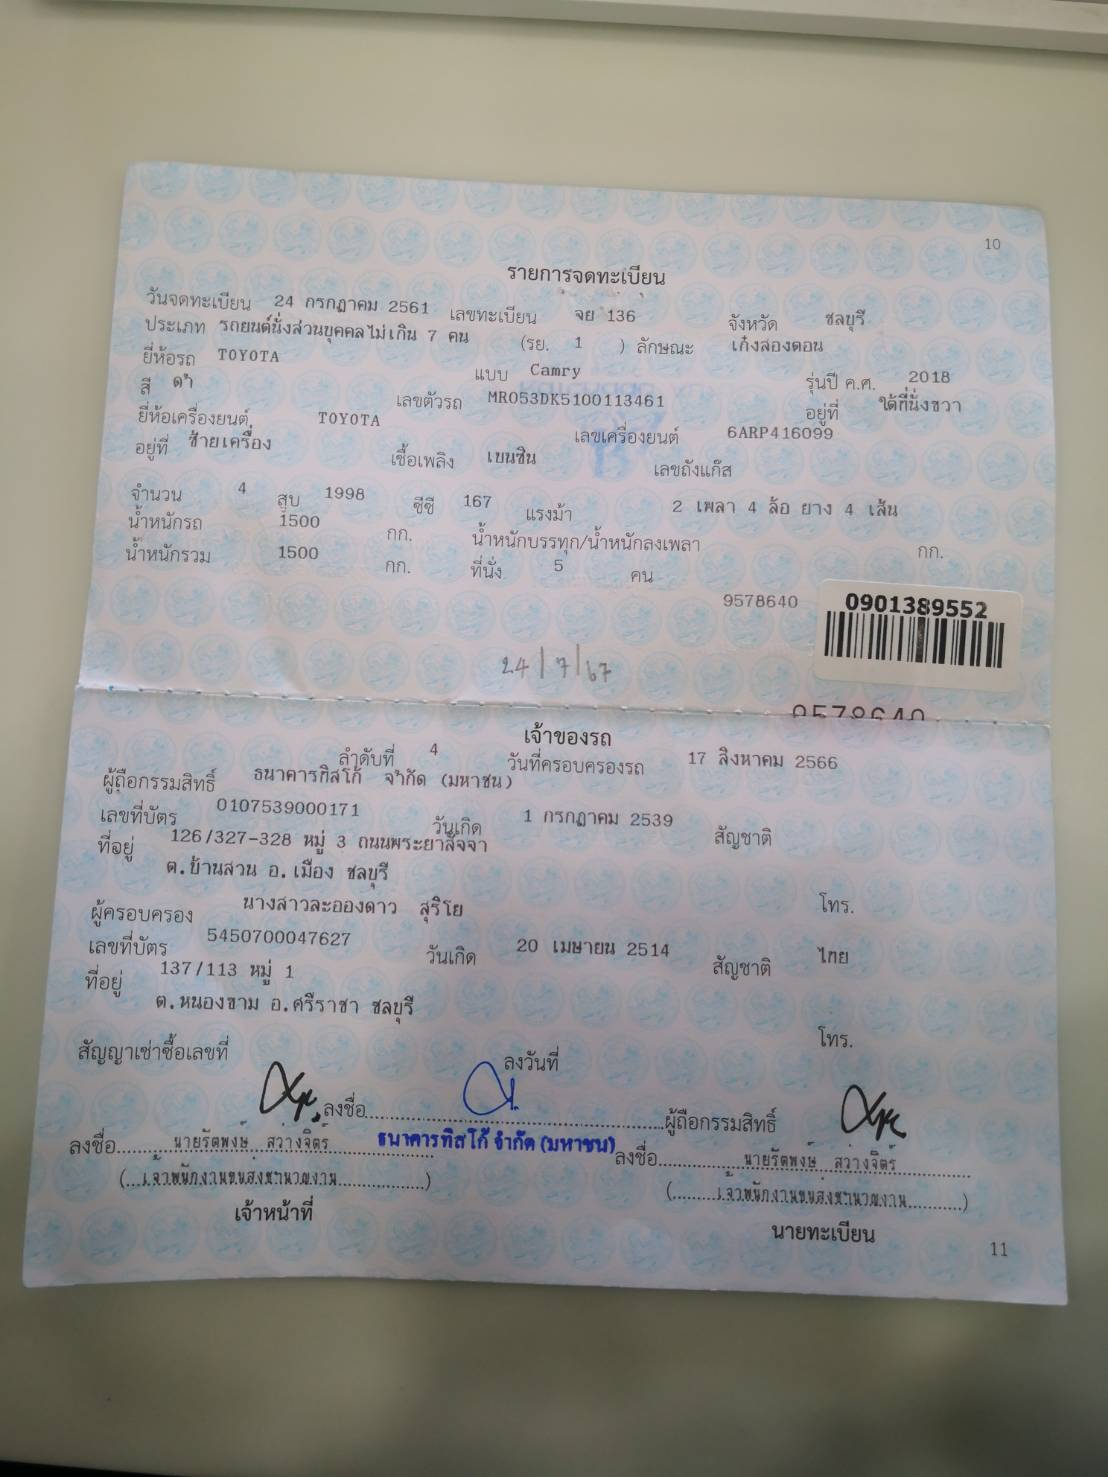 10
รายการจดทะเบียน
วันจดทะเบียน 24 กรกฎาคม 2561 เลขทะเบียน จย 136 จังหวัด ชลบุรี
ประเภท รถยนต์นั่งส่วนบุคคลไม่เกิน 7 คน (รย. 1 ) ลักษณะ เก๋งสองตอน
ยี่ห้อรถ TOYOTA แบบ Camry รุ่นปี ค.ศ. 2018
สี ดำ เลขตัวรถ MR053DK5100113461 อยู่ที่ ใต้ที่นั่งขวา
ยี่ห้อเครื่องยนต์ TOYOTA เลขเครื่องยนต์ 6ARP416099
อยู่ที่ ซ้ายเครื่อง เชื้อเพลิง เบนซิน เลขถังแก๊ส
จำนวน 4 สูบ 1998 ซีซี 167 แรงม้า 2 เพลา 4 ล้อ ยาง 4 เส้น
น้ำหนักรถ 1500 กก. น้ำหนักบรรทุก/น้ำหนักลงเพลา กก.
น้ำหนักรวม 1500 กก. ที่นั่ง 5 คน
9578640
0901389552
24/7/67
9578640
เจ้าของรถ
ลำดับที่ 4 วันที่ครอบครองรถ 17 สิงหาคม 2566
ผู้ถือกรรมสิทธิ์ ธนาคารทิสโก้ จำกัด (มหาชน)
เลขที่บัตร 0107539000171 วันเกิด 1 กรกฎาคม 2539 สัญชาติ
ที่อยู่ 126/327-328 หมู่ 3 ถนนพระยาสัจจา
ต.บ้านสวน อ.เมือง ชลบุรี
โทร.
ผู้ครอบครอง นางสาวละอองดาว สุริโย
เลขที่บัตร 5450700047627 วันเกิด 20 เมษายน 2514 สัญชาติ ไทย
ที่อยู่ 137/113 หมู่ 1
ต.หนองขาม อ.ศรีราชา ชลบุรี
โทร.
สัญญาเช่าซื้อเลขที่ ลงวันที่
ลงชื่อ ผู้ถือกรรมสิทธิ์
ธนาคารทิสโก้ จำกัด (มหาชน)
ลงชื่อ นายรัตพงษ์ สว่างจิตร์ ลงชื่อ นายรัตพงษ์ สว่างจิตร์
(เจ้าพนักงานขนส่งชำนาญงาน) (เจ้าพนักงานขนส่งชำนาญงาน)
เจ้าหน้าที่ นายทะเบียน
11